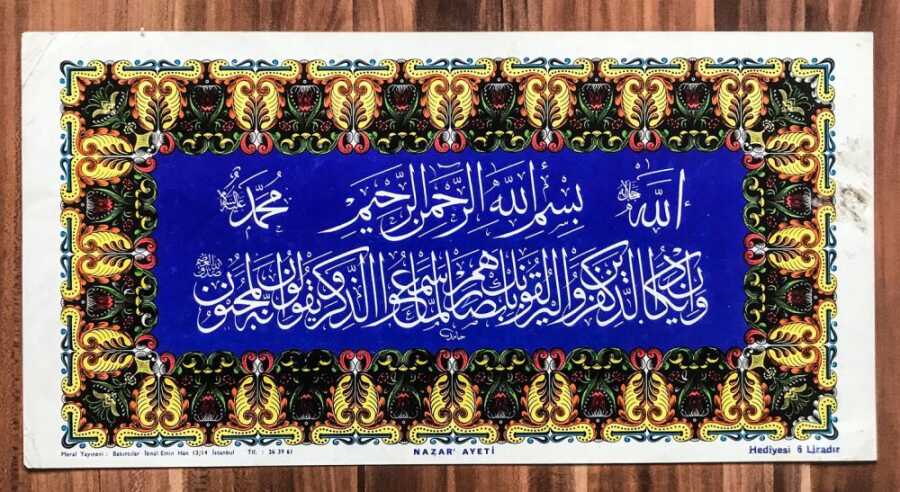 الله جل جلاله
بِسْمِ اللهِ الرَّحْمنِ الرَّحِيمِ
مُحَمَّد عليه السلام
وَإِنْ يَكَادُ الَّذِينَ كَفَرُوا لَيُزْلِقُونَكَ بِأَبْصَارِهِمْ لَمَّا سَمِعُوا الذِّكْرَ وَيَقُولُونَ إِنَّهُ لَمَجْنُونٌ
حامد
Meral Yayınevi : Bakırcılar Emin Han 13/14 İstanbul Tlf. : 26 39 61
NAZAR' AYETİ
Hediyesi 6 Liradır